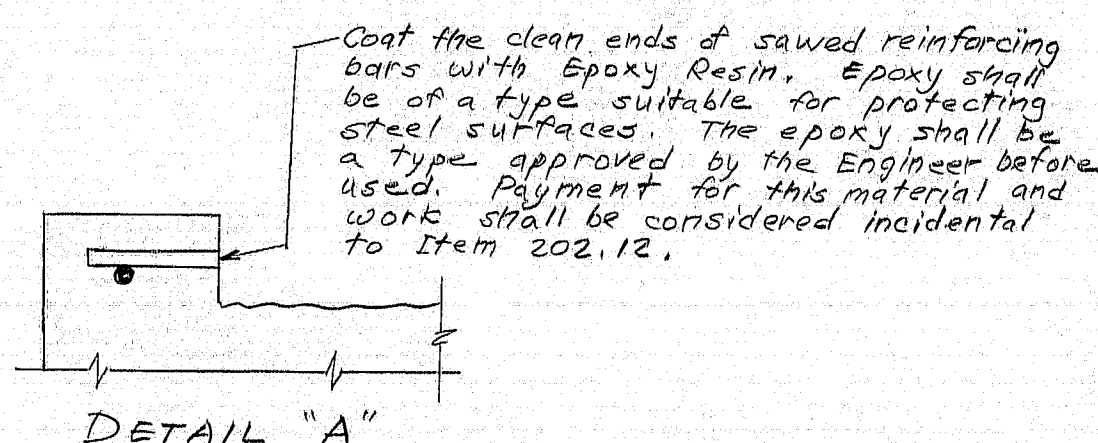 Coat the clean ends of sawed reinforcing
bars with Epoxy Resin. Epoxy shall
be of a type suitable for protecting
steel surfaces. The epoxy shall be
a type approved by the Engineer before
used. Payment for this material and
work shall be considered incidental
to Item 202.12.
DETAIL "A"